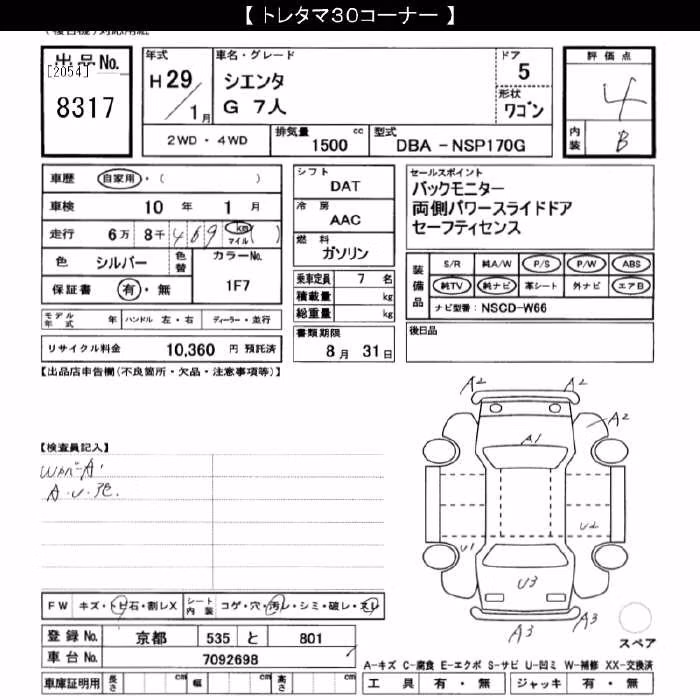 【トレタマ30コーナー】
出品No.
[2054]
8317
年式
H 29/1月
車名・グレード
シエンタ
G 7人
ドア
5
形状
ワゴン
評価点
4
内装
B
2WD・4WD
排気量 cc
1500
型式
DBA-NSP170G
車歴 自家用・( )
車検 10年 1月
走行 6万 8千 469 km マイル ( )
色 シルバー 色替 カラーNo. 1F7
保証書 有・無
モデル年式 年 ハンドル 左・右 ディーラー・並行
リサイクル料金 10,360 円 預託済
シフト
DAT
冷房
AAC
燃料
ガソリン
乗車定員 7 名
積載量 kg
総重量 kg
書類期限
8月 31日
セールスポイント
バックモニター
両側パワースライドドア
セーフティセンス
装備品
S/R 純A/W P/S P/W ABS
純TV 純ナビ 革シート 外ナビ エアB
ナビ型番: NSCD-W66
後日品
【出品店申告欄(不良箇所・欠品・注意事項等)】
【検査員記入】
A・U・
A2 A2
A2
A1
U2
U1
U3
A3 A3
スペア
FW キズ・トビ石・割レX シート内装 コゲ・穴・汚レ・シミ・破レ・スレ
登録No. 京都 535 と 801
車台No. 7092698
車庫証明用 長さ cm 幅 cm 高さ cm
A-キズ C-腐食 E-エクボ S-サビ U-凹ミ W-補修 XX-交換済
工具 有・無 ジャッキ 有・無